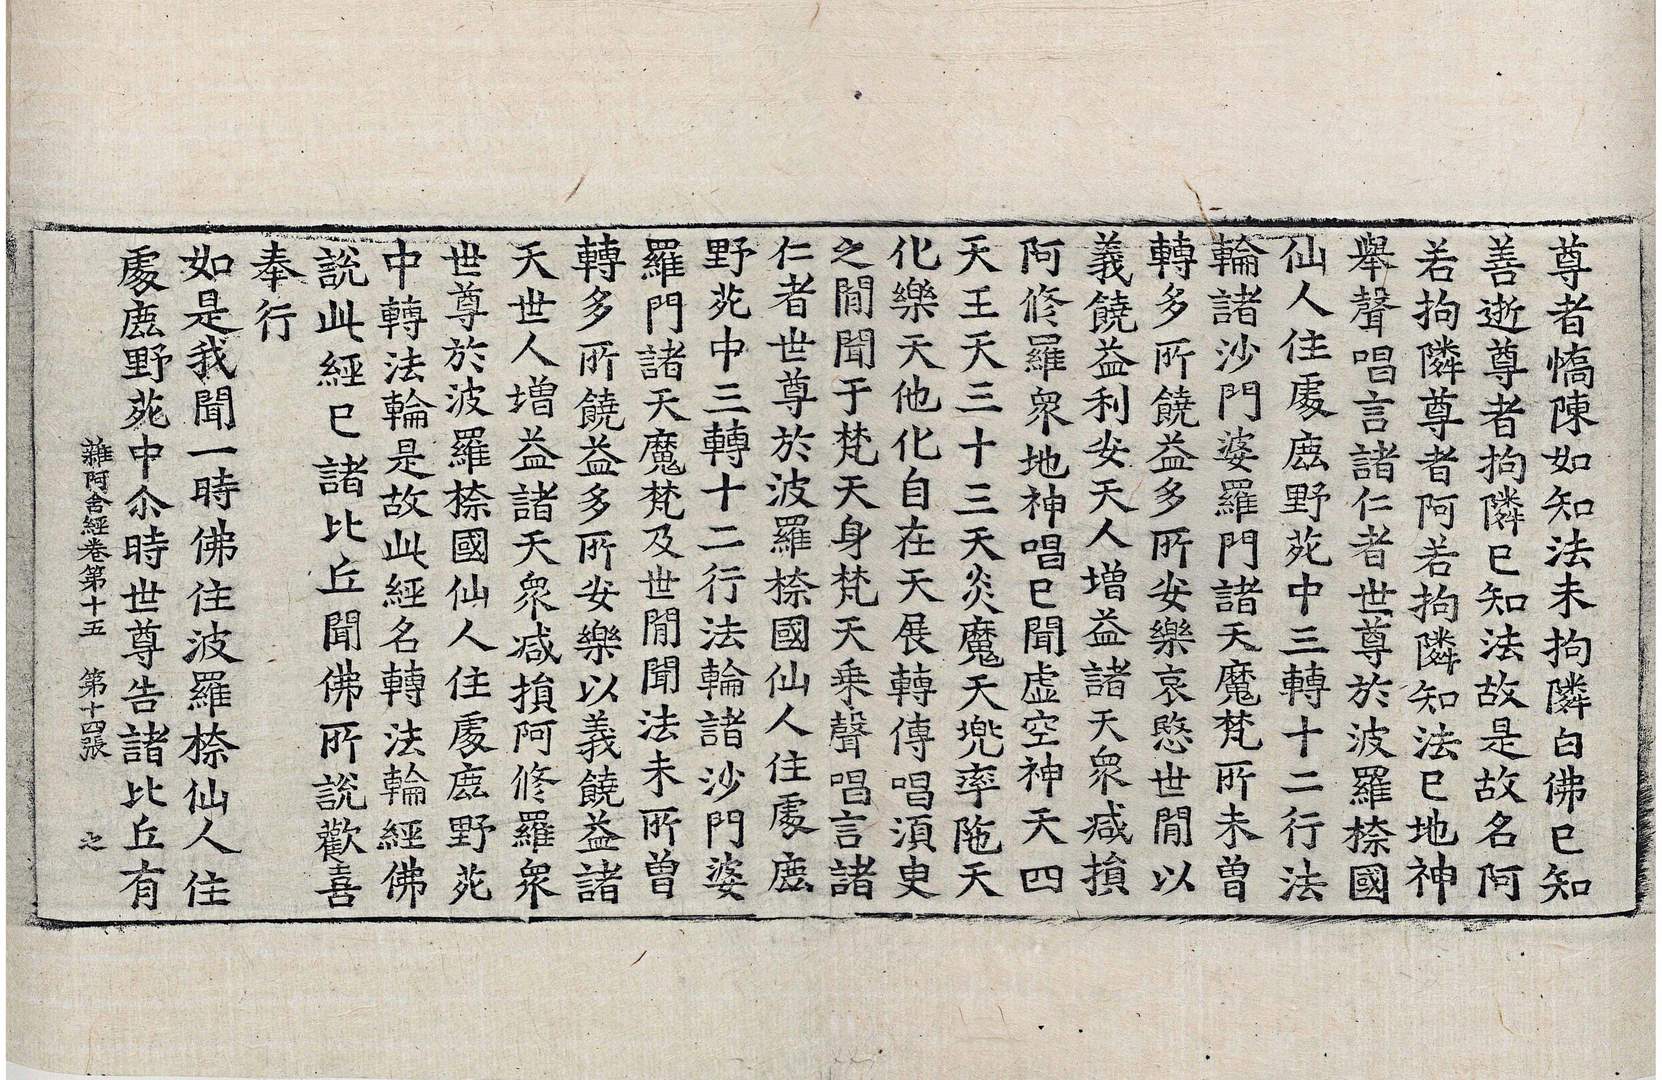 尊者憍陳如知法未拘隣白佛已知
善逝尊者拘隣已知法故是故名阿
若拘隣尊者阿若拘隣知法已地神
舉聲唱言諸仁者世尊於波羅㮈國
仙人住處鹿野苑中三轉十二行法
輪諸沙門婆羅門諸天魔梵所未曾
轉多所饒益多所安樂哀愍世閒以
義饒益利安天人增益諸天衆減損
阿修羅衆地神唱已聞虛空神天四
天王天三十三天炎魔天兜率陁天
化樂天他化自在天展轉傳唱須臾
之閒聞于梵天身梵天乗聲唱言諸
仁者世尊於波羅㮈國仙人住處鹿
野苑中三轉十二行法輪諸沙門婆
羅門諸天魔梵及世閒聞法未所曾
轉多所饒益多所安樂以義饒益諸
天世人增益諸天衆減損阿修羅衆
世尊於波羅㮈國仙人住處鹿野苑
中轉法輪是故此經名轉法輪經佛
說此經已諸比丘聞佛所說歡喜
奉行
如是我聞一時佛住波羅㮈仙人住
處鹿野苑中尒時世尊告諸比丘有
雜阿含經卷第十五 第十四張 之